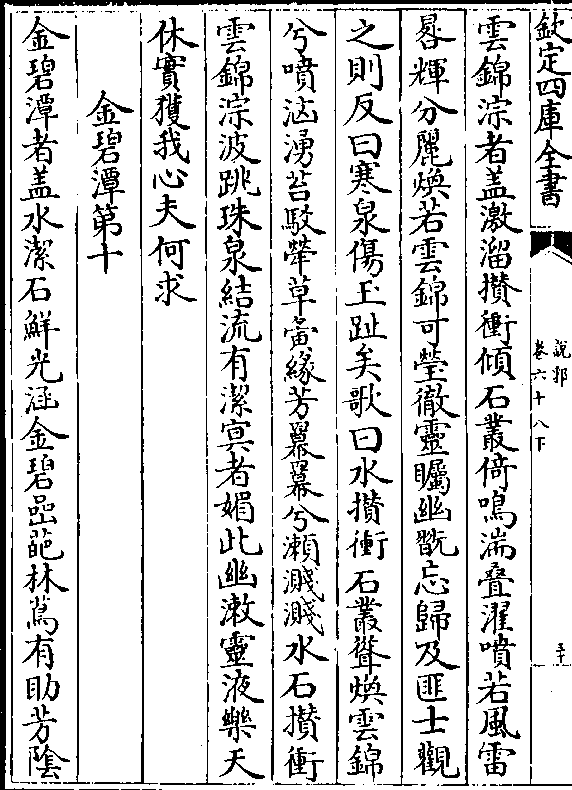 欽定四庫全書
說郛
卷六十八下
雲錦淙者盖激溜攅衝傾石叢倚鳴湍疊濯噴若風雷
晷輝分麗煥若雲錦可瑩徹靈矚幽翫忘歸及匪士觀
之則反曰寒泉傷玉趾矣歌曰水攅衝石叢聳煥雲錦
兮噴洶湧苔駮犖草夤緣芳羃羃兮瀬濺濺水石攅衝
雲錦淙波跳珠泉結流有潔㝠者媚此幽潄靈液樂天
休實獲我心夫何求
金碧潭第十
金碧潭者盖水潔石鮮光涵金碧嵓葩林蔦有助芳隂